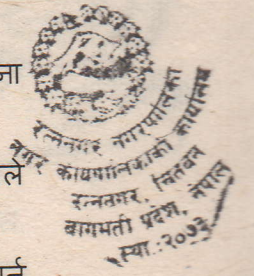 ना
रत्ननगर नगरपालिका
नगर कार्यपालिकाको कार्यालय
ले
रत्ननगर, चितवन
बागमती प्रदेश, नेपाल
स्था: २०७३